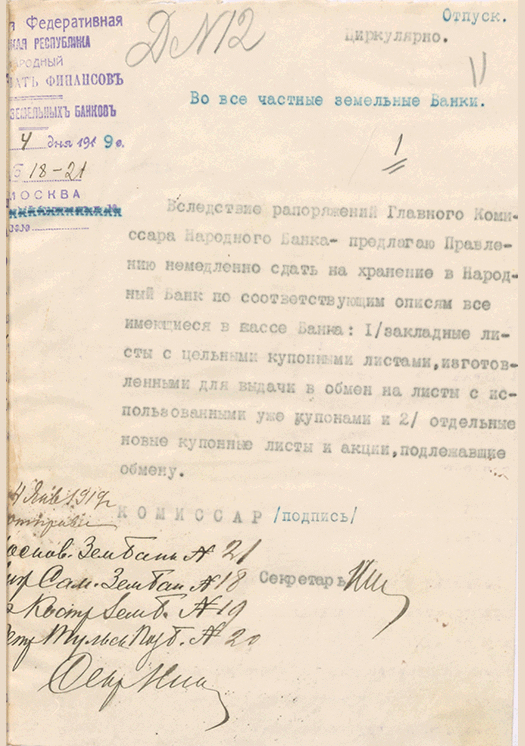 Федеративная
РЕСПУБЛИКА
ФИНАНСОВЪ
ЗЕМЕЛЬНЫХЪ БАНКОВЪ
4 дня 1919 г.
18-21
МОСКВА
Д N12
Отпуск.
Циркулярно.
Во все частные земельные Банки.
1
Вследствие рапоряжений Главного Коми-
ссара Народного Банка- предлагаю Правле-
нию немедленно сдать на хранение в Народ-
ный Банк по соответствующим описям все
имеющиеся в кассе Банка: I/закладные ли-
сты с цельными купонными листами,изготов-
ленными для выдачи в обмен на листы с ис-
пользованными уже купонами и 2/ отдельные
новые купонные листы и акции,подлежавшие
обмену.
КОМИССАР /подпись/
4 Янв 1919г
Зембанк N 21
Сам. Зем бан N 18
Костр Земб. N 19
Тульск П. б. N 20
Секретарь